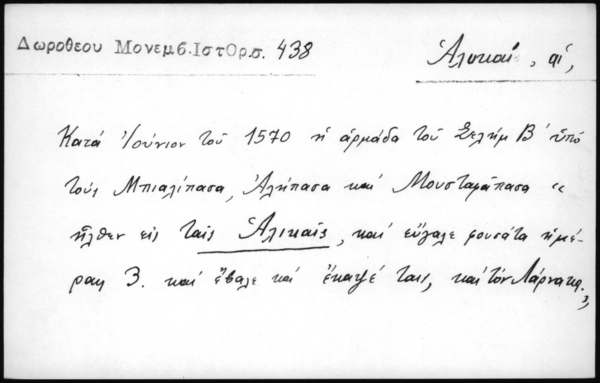 Δωροθεου Μονεμβ.ΙστΟρσ. 438
Ἁλυκαί, αἱ,
Κατά Ἰούνιον τοῦ 1570 ἡ ἀρμάδα τοῦ Σελήμ Β΄ ὑπό
τούς Μπιαλίπασα, Ἀλήπασα καί Μουσταφάπασα "
ἦλθεν εἰς ταῖς Ἁλικαῖς, καί εὔγαλε φουσάτα ἡμέ-
ραις 3. καί ἔβαλε καί ἔκαψέ ταις, καί τόν Λάρνακα.",